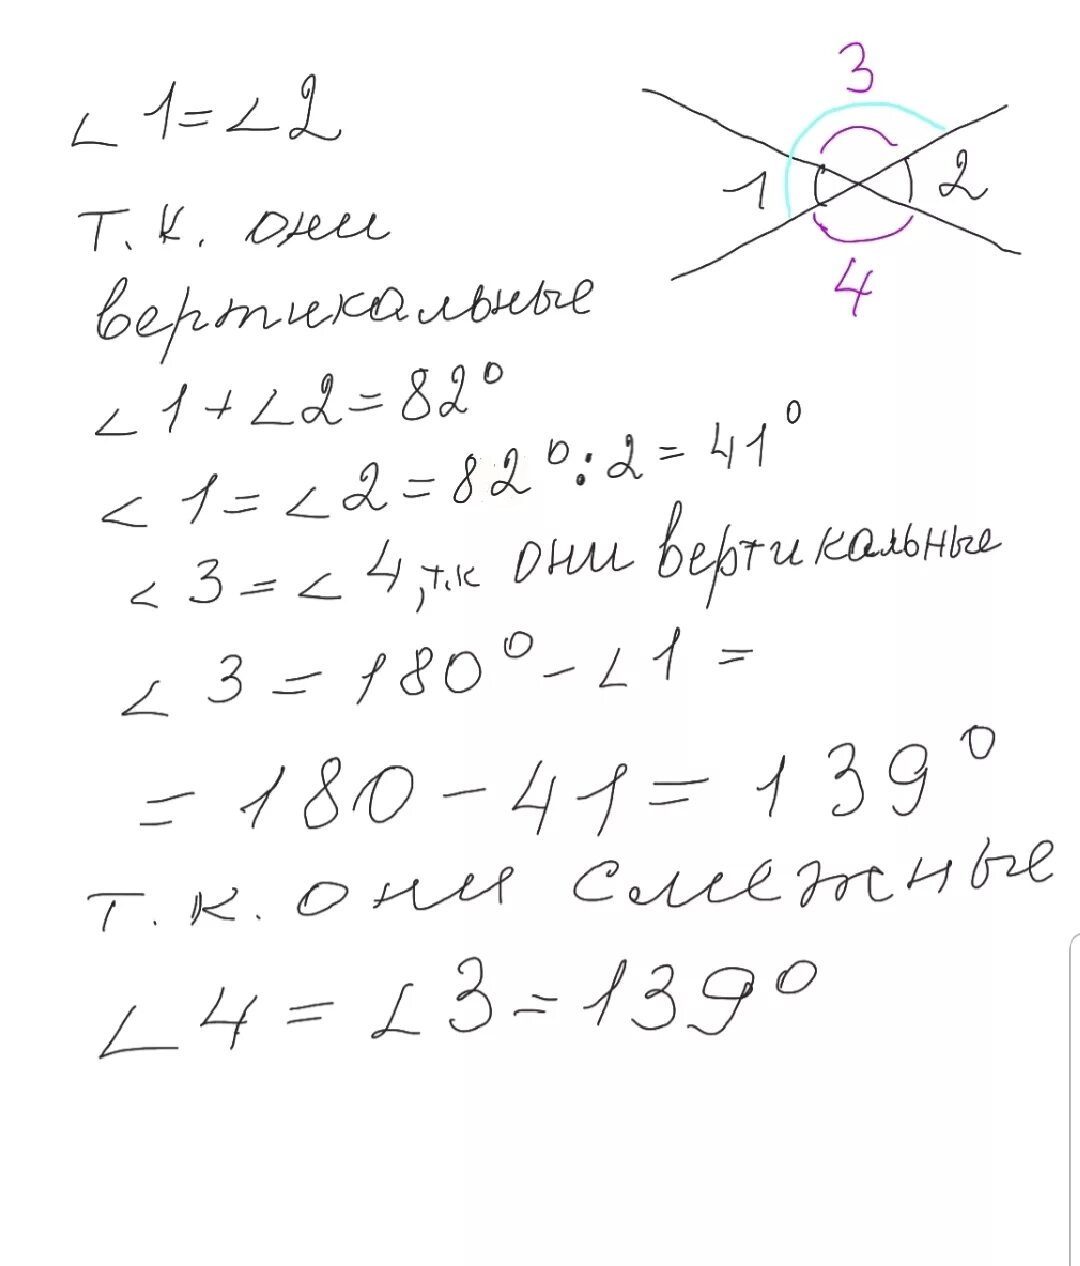 ∠1=∠2
т.к. они
вертикальные
∠1+∠2=82°
∠1=∠2=82°:2=41°
∠3=∠4,т.к они вертикальные
∠3=180°-∠1=
=180-41=139°
т.к. они смежные
∠4=∠3=139°
3
1
2
4